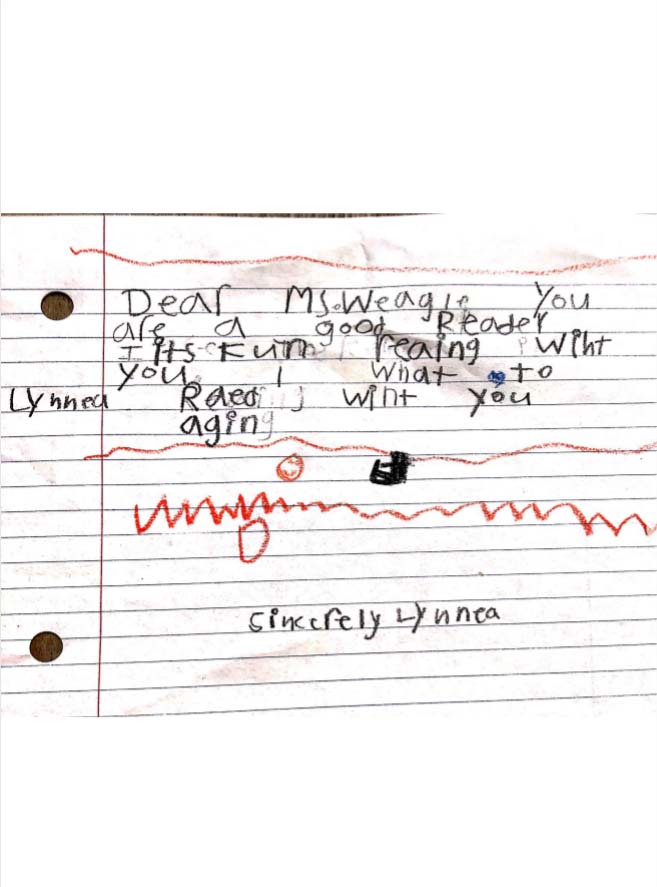 Dear Ms.Weagle You
are a good Reader
I its Fun reaing Wiht
you. I What to
Lynnea Raed wiht you
aging
Sincerely Lynnea